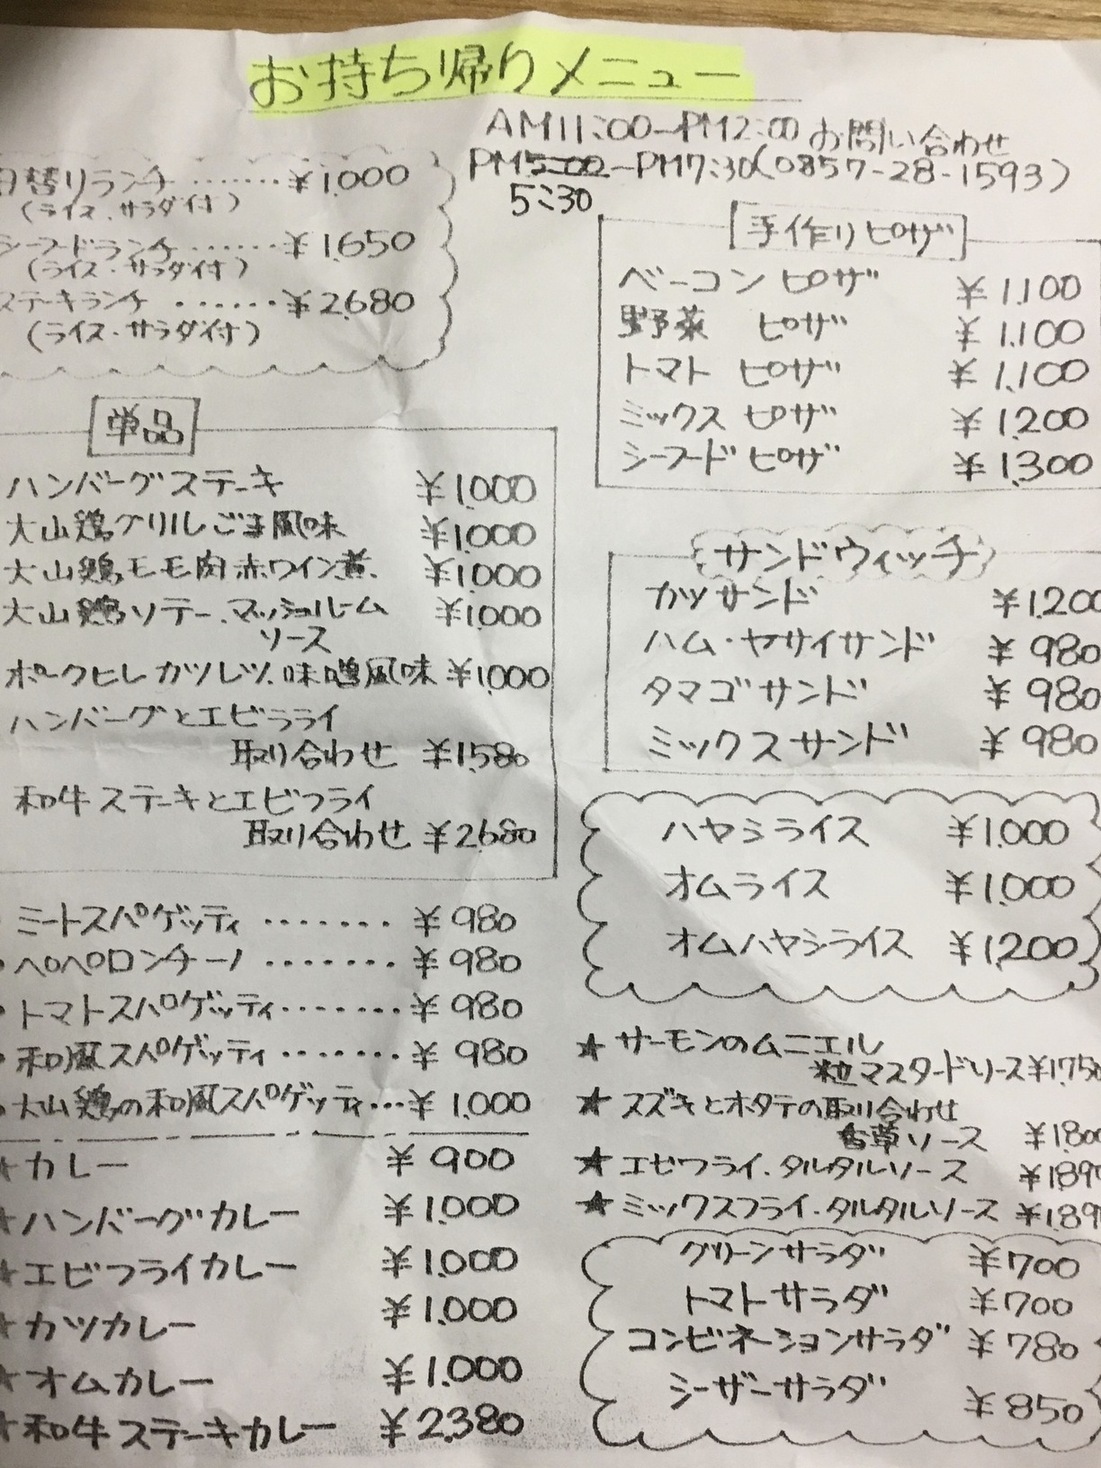 お持ち帰りメニュー
AM11:00-PM2:00 お問い合わせ
PM5:00-PM7:30(0857-28-1593)
5:30
日替りランチ ・・・・・・・ ¥1,000
(ライス・サラダ付)
シーフードランチ ・・・・・・ ¥1,650
(ライス・サラダ付)
ステーキランチ ・・・・・・ ¥2,680
(ライス・サラダ付)
単品
ハンバーグステーキ ¥1,000
大山鶏グリルごま風味 ¥1,000
大山鶏モモ肉赤ワイン煮 ¥1,000
大山鶏ソテー.マッシュルーム ¥1,000
ソース
ポークヒレカツレツ.味噌風味 ¥1,000
ハンバーグとエビフライ
取り合わせ ¥1,580
和牛ステーキとエビフライ
取り合わせ ¥2,680
・ミートスパゲッティ ・・・・・・・ ¥980
・ペペロンチーノ ・・・・・・・ ¥980
・トマトスパゲッティ・・・・・・・ ¥980
・和風スパゲッティ ・・・・・・・ ¥980
・大山鶏の和風スパゲッティ・・・¥1,000
★カレー ¥900
★ハンバーグカレー ¥1,000
★エビフライカレー ¥1,000
★カツカレー ¥1,000
★オムカレー ¥1,000
★和牛ステーキカレー ¥2,380
手作りピザ
ベーコンピザ ¥1,100
野菜 ピザ ¥1,100
トマト ピザ ¥1,100
ミックス ピザ ¥1,200
シーフード ピザ ¥1,300
サンドウィッチ
カツサンド ¥1,200
ハム・ヤサイサンド ¥980
タマゴサンド ¥980
ミックスサンド ¥980
ハヤシライス ¥1,000
オムライス ¥1,000
オムハヤシライス ¥1,200
★サーモンのムニエル
粒マスタードソース¥1,750
★スズキとホタテの取り合わせ
香草ソース ¥1,800
★エビフライ.タルタルソース ¥1,89
★ミックスフライ.タルタルソース ¥1,89
グリーンサラダ ¥700
トマトサラダ ¥700
コンビネーションサラダ ¥780
シーザーサラダ ¥850